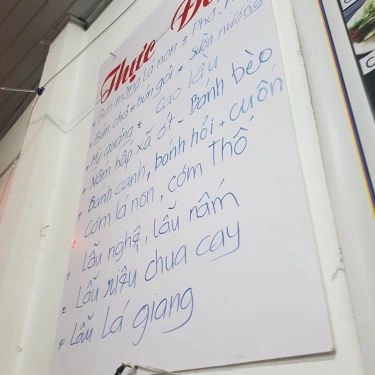 Thực Đơn
* Bún măng, lá non * Phở
* Bún chả * bún gỏi * Sườn nướng
* Mỳ quảng * cao lầu
* Nấm hấp xả ớt - Bánh bèo
* Bánh canh, bánh hỏi + cuốn
Cơm lá non, cơm thố
* Lẩu nghệ, lẩu nấm
* Lẩu riêu chua cay
* Lẩu lá giang